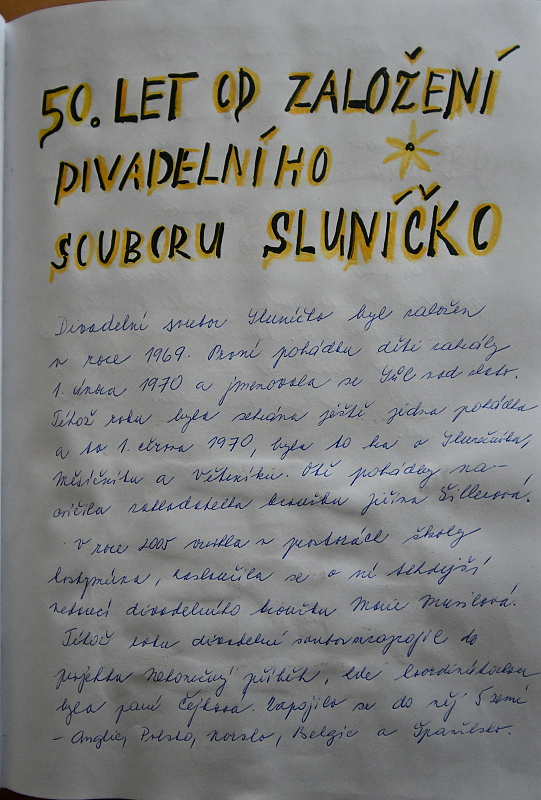 50. LET OD ZALOŽENÍ
DIVADELNÍHO
SOUBORU SLUNÍČKO
Divadelní soubor Sluníčko byl založen
v roce 1969. První pohádku děti zahrály
1. února 1970 a jmenovala se Sůl nad zlato.
Téhož roku byla sehrána ještě jedna pohádka
a to 1. června 1970, byla to ta o Slunečníku,
Měsíčníku a Větrníku. Obě pohádky na-
cvičila zakladatelka kroužku Jiřina Šillerová.
V roce 2005 vznikla v prostorách školy
kostymérna, zasloužila se o ní tehdejší
vedoucí divadelního kroužku Marie Musilová.
Téhož roku divadelní soubor zapojil do
projektu Nekonečný příběh, kde koordinátorkou
byla paní Čejkova. Zapojilo se do něj 5 zemí
- Anglie, Polsko, Norsko, Belgie a Španělsko.